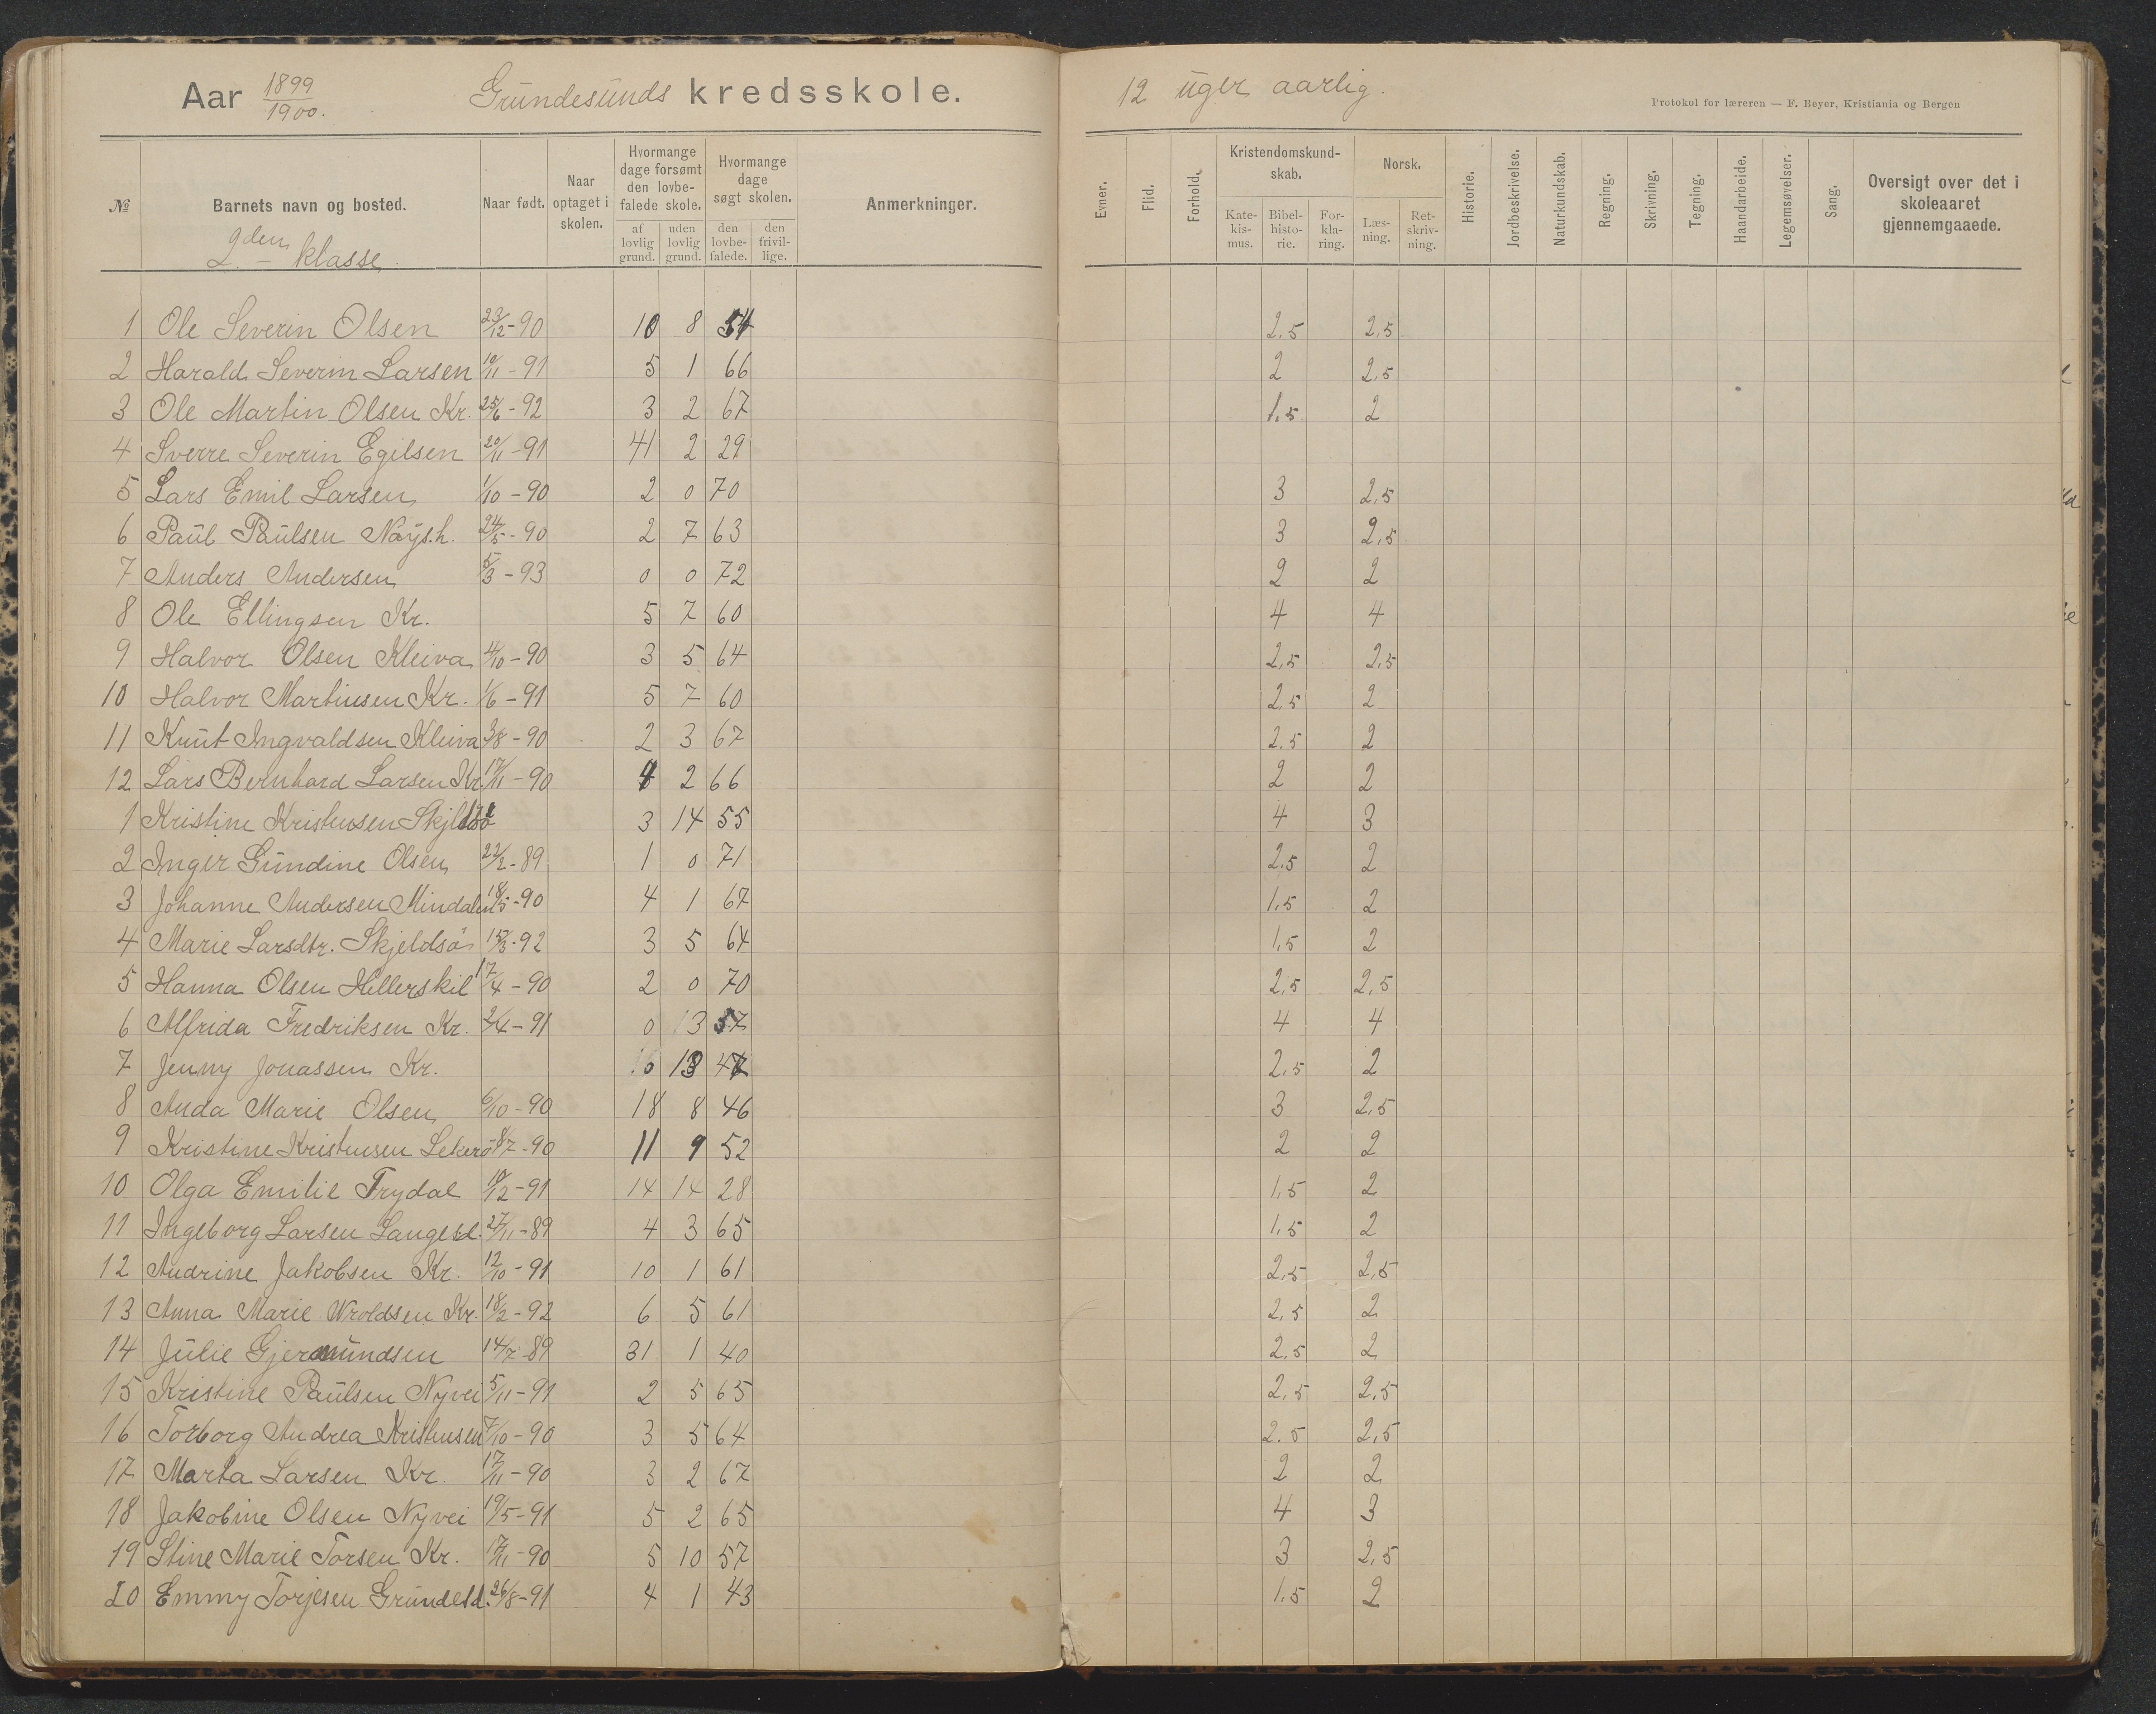 Aar 1899/1900. Grundesunds kredsskole. 12 uger aarlig.
Protokol for læreren — F. Beyer, Kristiania og Bergen
№ Barnets navn og bosted. Naar født. Naar optaget i skolen. Hvormange dage forsømt den lovbefalede skole. af lovlig grund. uden lovlig grund. Hvormange dage søgt skolen. den lovbefalede. den frivillige. Anmerkninger. Evner. Flid. Forhold. Kristendomskundskab. Katekismus. Bibelhistorie. Forklaring. Norsk. Læsning. Retskrivning. Historie. Jordbeskrivelse. Naturkundskab. Regning. Skrivning. Tegning. Haandarbeide. Legemsøvelser. Sang. Oversigt over det i skoleaaret gjennemgaaede.
2den klasse.
1 Ole Severin Olsen 23/12-90 10 8 54 2.5 2,5
2 Harald Severin Larsen 10/11-91 5 1 66 2 2,5
3 Ole Martin Olsen Kr. 25/6-92 3 2 67 1.5 2
4 Sverre Severin Egilsen 20/11-91 41 2 29
5 Lars Emil Larsen 1/10-90 2 0 70 3 2,5
6 Paul Paulsen Nøys.h. 24/5-90 2 7 63 3 2,5
7 Anders Andersen 5/3-93 0 0 72 2 2
8 Ole Ellingsen Kr. 5 7 60 4 4
9 Halvor Olsen Kleiva 4/10-90 3 5 64 2,5 2,5
10 Halvor Martinsen Kr. 1/6-91 5 7 60 2.5 2
11 Knut Ingvaldsen Kleiva 3/8-90 2 3 67 2.5 2
12 Lars Bernhard Larsen Kr. 17/11-90 4 2 66 2 2
1 Kristine Kristensen Skjeldsø 3 14 55 4 3
2 Inger Gundine Olsen 22/2-89 1 0 71 2.5 2
3 Johanne Andersen Mindalen 18/5-90 4 1 67 1,5 2
4 Marie Larsdtr. Skjeldsø 15/3-92 3 5 64 1,5 2
5 Hanna Olsen Hellerskil 17/4-90 2 0 70 2,5 2,5
6 Alfrida Fredriksen Kr. 2/4-91 0 13 57 4 4
7 Jenny Jonassen Kr. 13 47 2,5 2
8 Anda Marie Olsen 6/10-90 18 8 46 3 2,5
9 Kristine Kristensen Lekerø 8/7-90 11 9 52 2 2
10 Olga Emilie Frydal 10/12-91 14 14 28 1,5 2
11 Ingeborg Larsen Langesd. 27/11-89 4 3 65 1,5 2
12 Andrine Jakobsen Kr. 12/10-91 10 1 61 2,5 2,5
13 Anna Marie Wroldsen Kr. 18/2-92 6 5 61 2,5 2
14 Julie Gjermundsen 14/7-89 31 1 40 2.5 2
15 Kristine Paulsen Nyvei 5/11-91 2 5 65 2,5 2,5
16 Torborg Andrea Kristensen 7/10-90 3 5 64 2.5 2,5
17 Marta Larsen Kr. 17/11-90 3 2 67 2 2
18 Jakobine Olsen Nyvei 19/5-91 5 2 65 4 3
19 Stine Marie Torsen Kr. 17/11-90 5 10 57 3 2,5
20 Emmy Torjesen Grundesd. 26/8-91 4 1 43 1.5 2